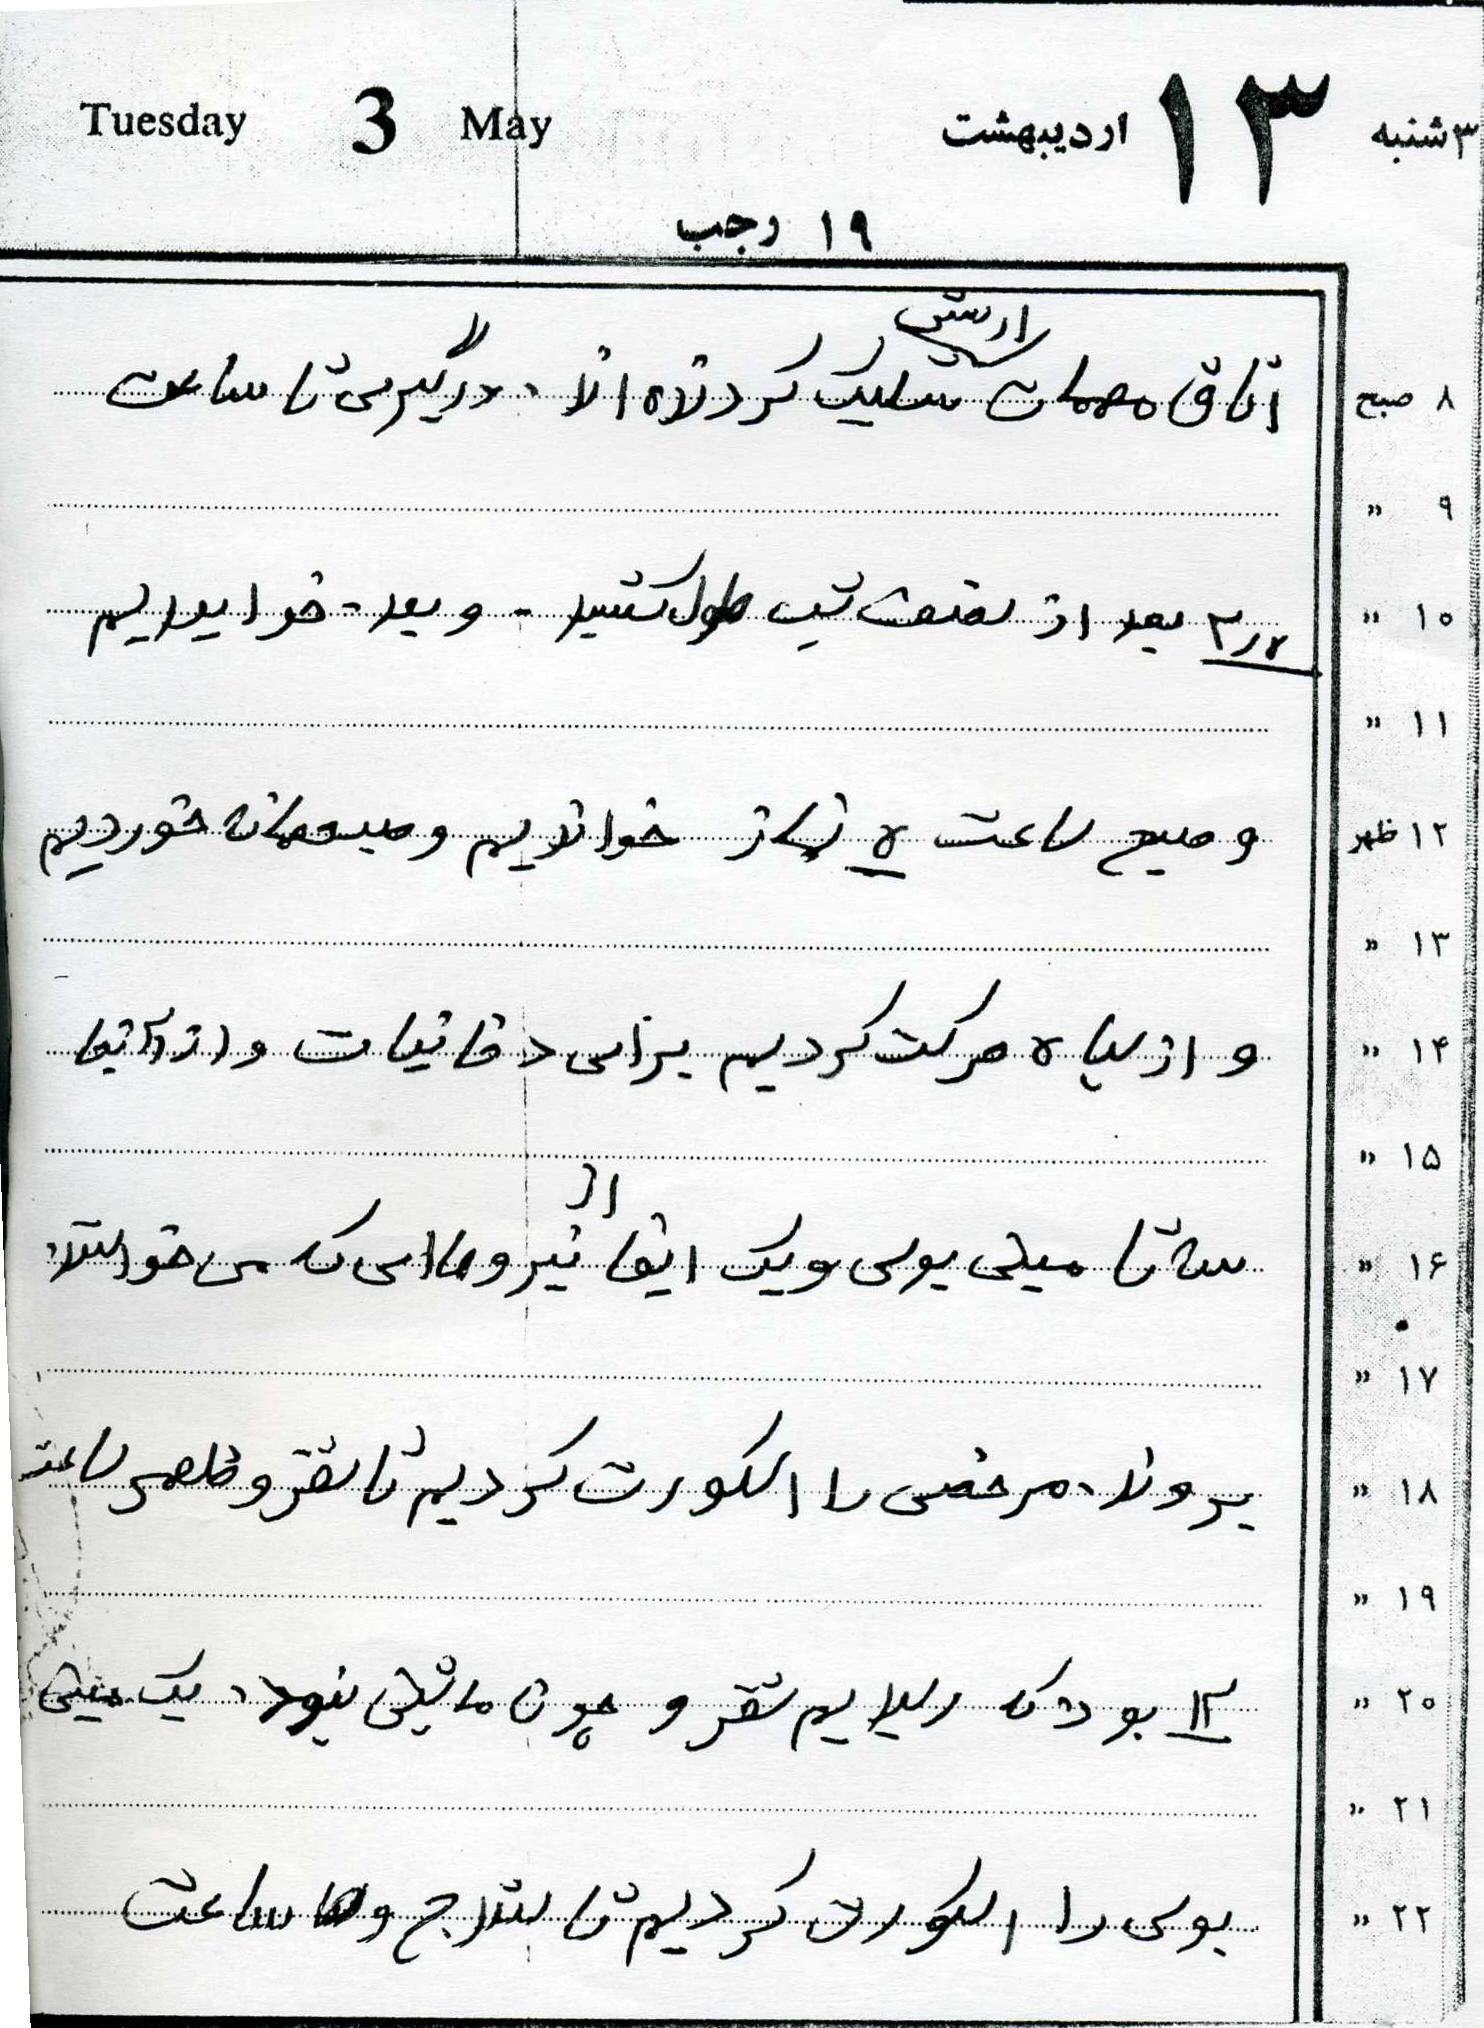 Tuesday 3 May ۱۳ اردیبهشت ۳شنبه
۱۹ رجب
ارتش
۸ صبح اتاق مهمات شلیک کردند اند. درگیری تا ساعت
۹ "
۱۰ " ۲ر۵ بعد از نصف شب طول کشید - و بعد خوابیدیم
۱۱ "
۱۲ ظهر و صبح ساعت ۵ نماز خواندیم و صبحانه خوردیم
۱۳ "
۱۴ " و از سپاه حرکت کردیم برای و از آنجا
۱۵ "
از
۱۶ " سه تا مینی بوس و یک ایفا نیروهایی که می خواستند
۱۷ "
۱۸ " بروند مرخصی را اسکورت کردیم تا سقز و ظهر ساعت
۱۹ "
۲۰ " ۱۲ بود که رسیدیم سقز و چون ماشین نبود. یک مینی
۲۱ "
۲۲ " بوس را اسکورت کردیم تا سنندج و ساعت